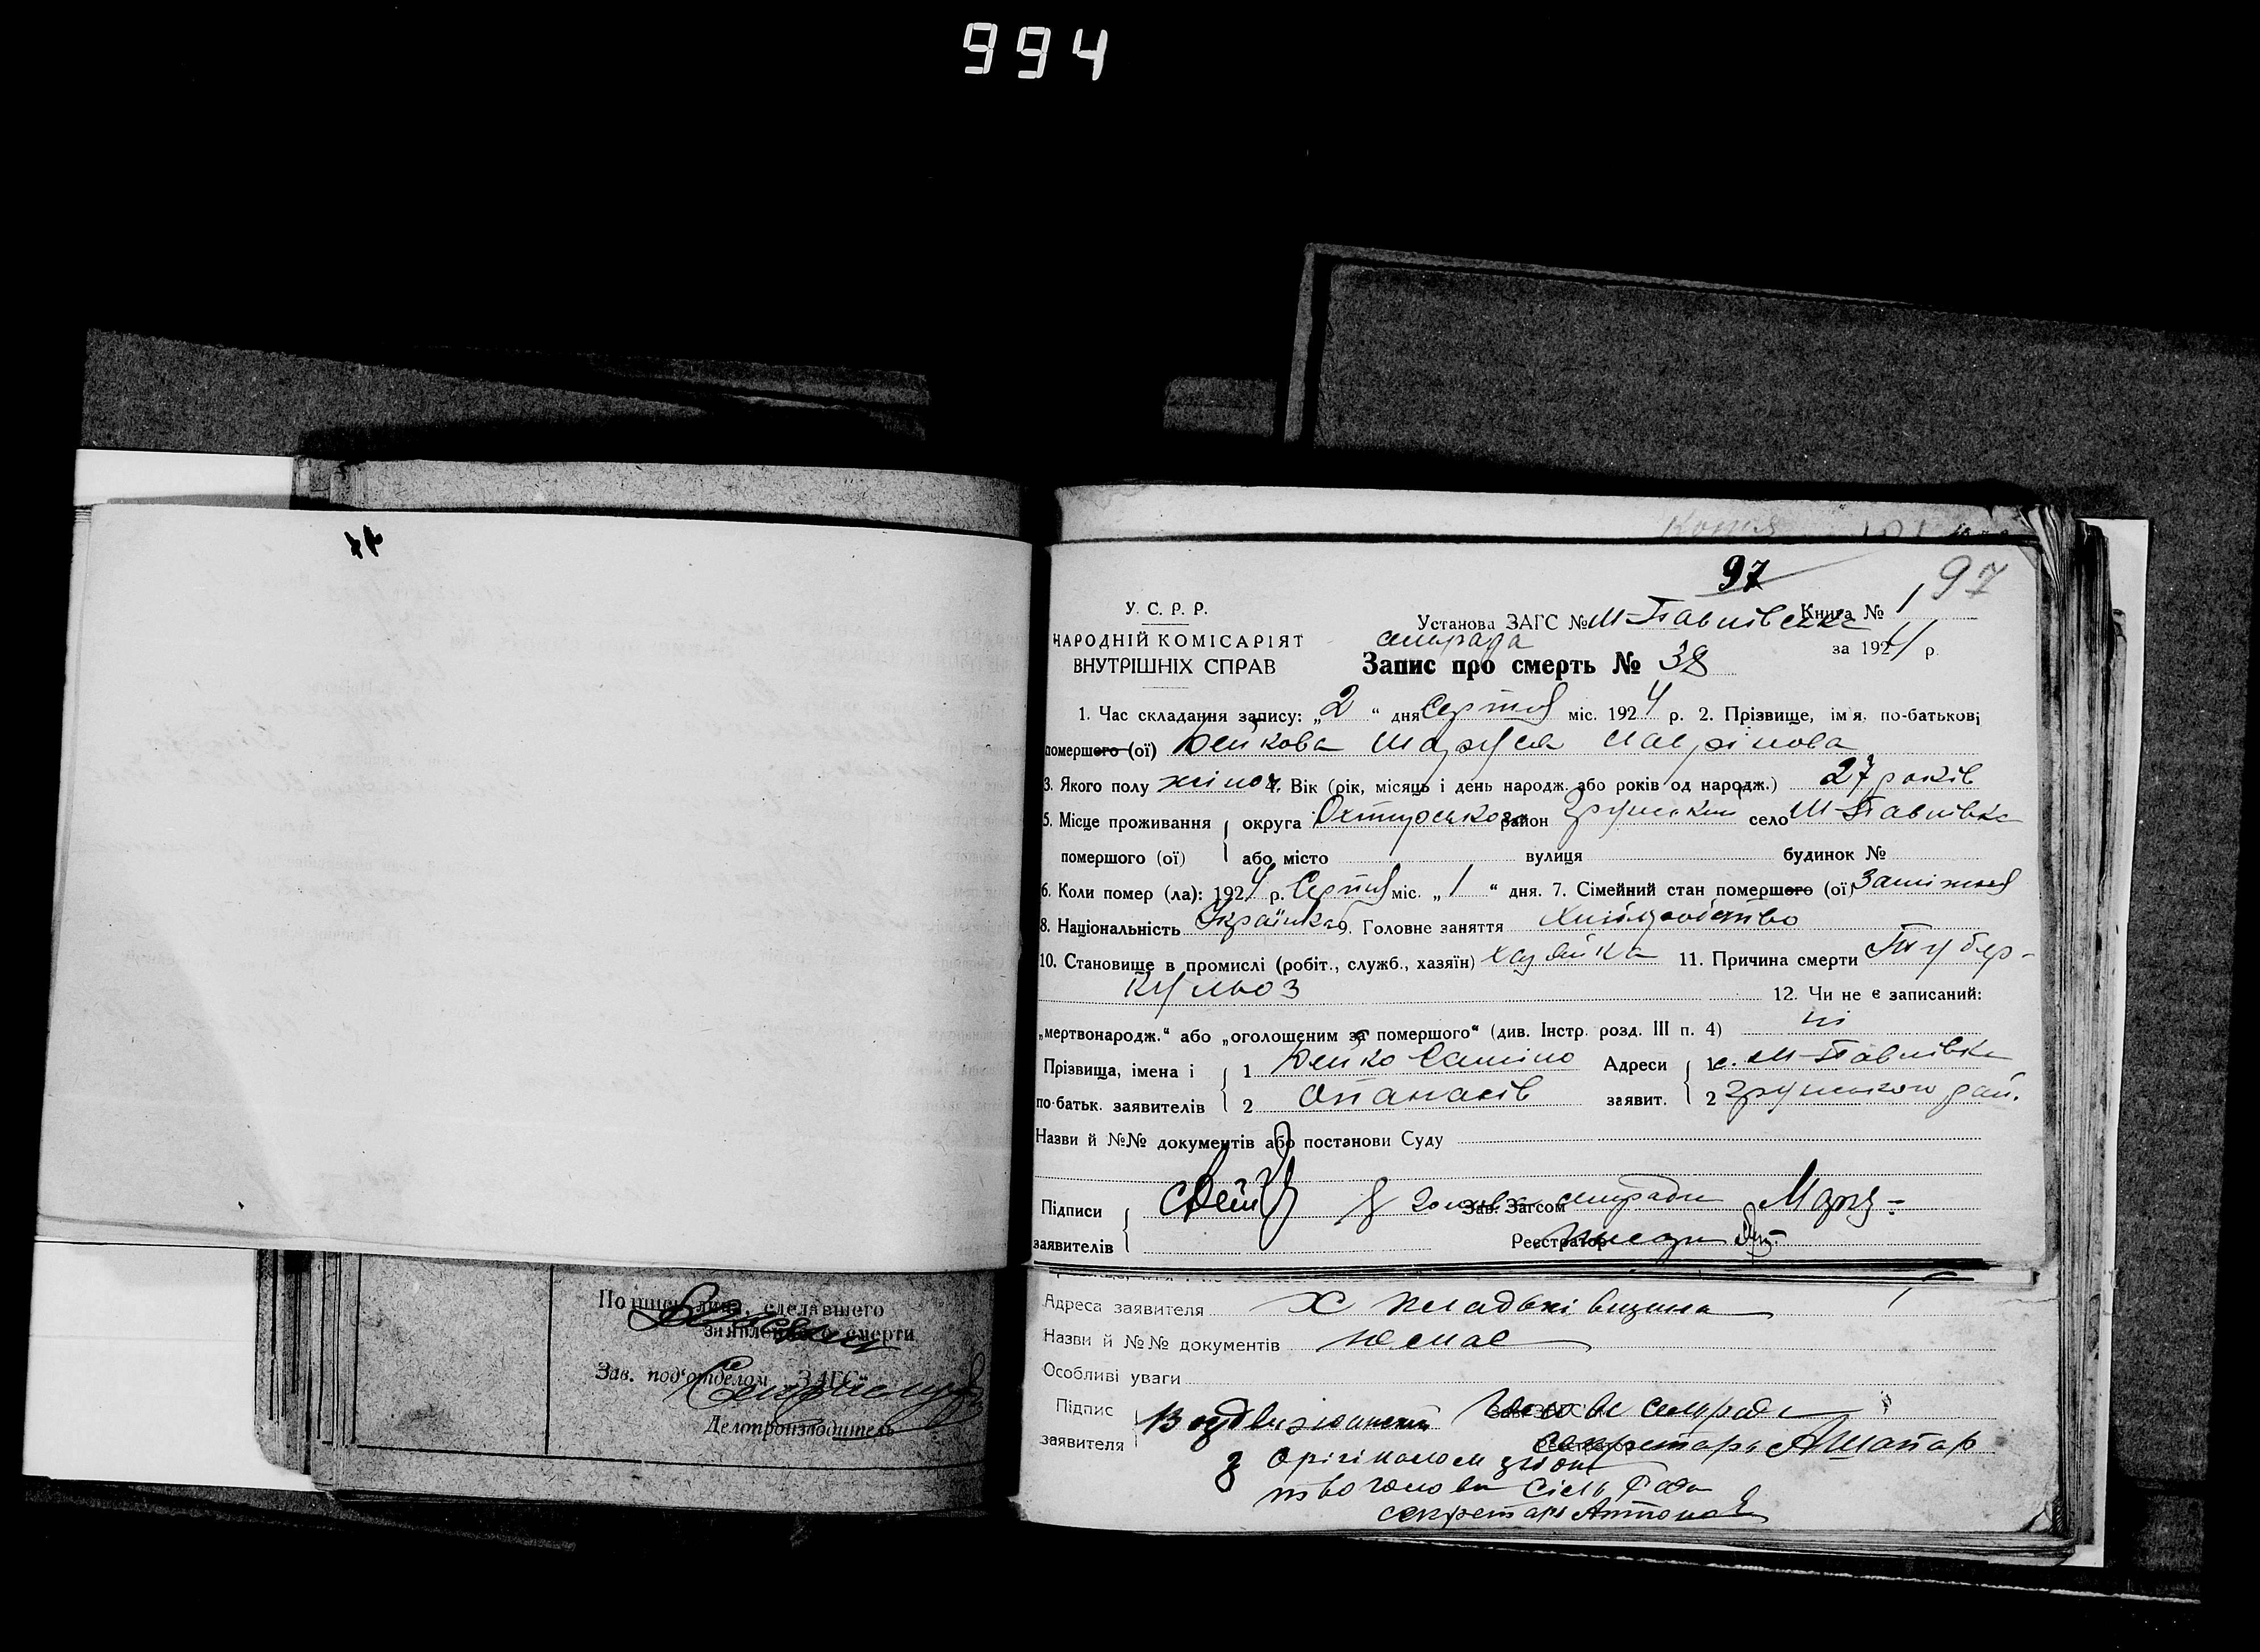 994
Копія
97
97
У. С. Р. Р.
Установа ЗАГС № М-Павлівська Книга № 1
НАРОДНІЙ КОМІСАРІЯТ
сельрада
за 1924 р.
ВНУТРІШНІХ СПРАВ
Запис про смерть № 38
1. Час складання запису: „2“ дня Серпня міс. 1924 р. 2. Прізвище, ім'я, по-батькові
помершого (ої) Дейкова Маруся Лаврінова
3. Якого полу жіноч. 4. Вік (рік, місяць і день народж. або років од народж.) 27 років
5. Місце проживання округа Охтирського район Грунський село М-Павлівка
помершого (ої) або місто вулиця будинок №
6. Коли помер (ла): 1924 р. Серпня міс. „1“ дня. 7. Сімейний стан помершого (ої) Заміжня
8. Національність Українка 9. Головне заняття Хліборобство
10. Становище в промислі (робіт., служб., хазяїн) хазяйка 11. Причина смерти Тубер-
кульоз
12. Чи не є записаний:
„мертвонародж.“ або „оголошеним за помершого“ (див. Інстр. розд. III п. 4) ні
Прізвища, імена і 1 Дейко Адреси 1 с. М-Павлівка
по-батьк. заявителів 2 Опанасів заявит. 2 Грунського рай.
Назви й №№ документів або постанови Суду
Підписи Зав. Загсом сельради
заявителів Реєстратор
Подпись лица, сделавшего
заявление о смерти
Зав. под'отделом ЗАГС
Делопроизводитель
Адреса заявителя Х
Назви й №№ документів немає
Особливі уваги
Підпис Голова сельради
заявителя секретарь
З орігіналом
голова Сіль Рада
секретарь